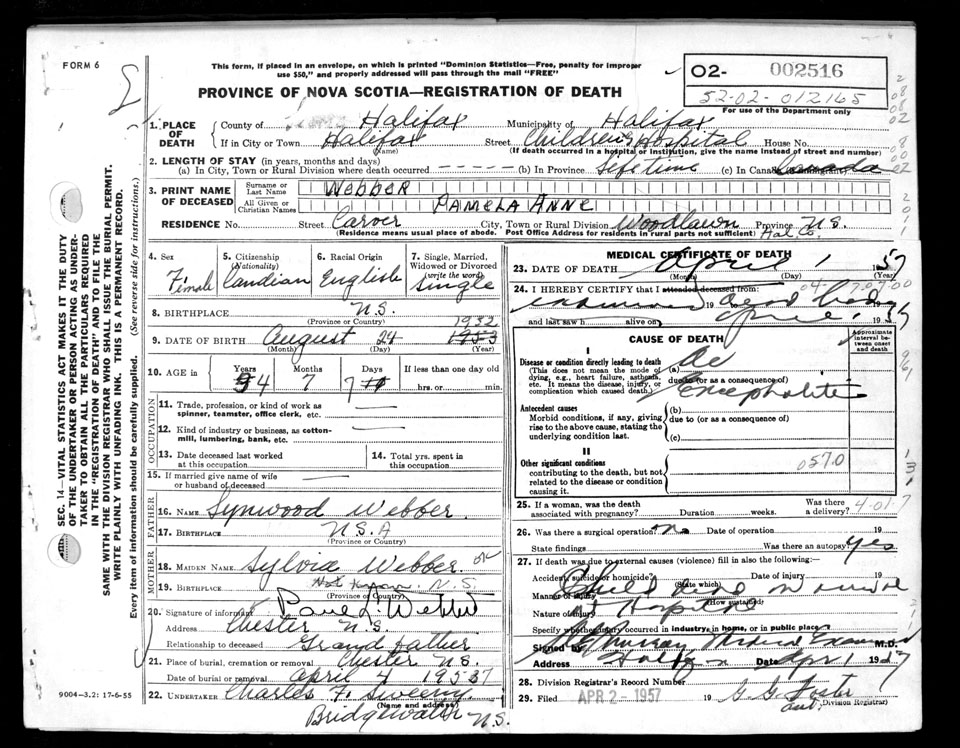 FORM 6
This form, if placed in an envelope, on which is printed "Dominion Statistics—Free, penalty for improper
use $50," and properly addressed will pass through the mail "FREE"
PROVINCE OF NOVA SCOTIA—REGISTRATION OF DEATH
02- 002516
52-02-012165
For use of the Department only
SEC. 14—VITAL STATISTICS ACT MAKES IT THE DUTY
OF THE UNDERTAKER OR PERSON ACTING AS UNDER-
TAKER TO OBTAIN ALL THE PARTICULARS REQUIRED
IN THE "REGISTRATION OF DEATH" AND TO FILE THE
SAME WITH THE DIVISION REGISTRAR WHO SHALL ISSUE THE BURIAL PERMIT.
WRITE PLAINLY WITH UNFADING INK. THIS IS A PERMANENT RECORD.
Every item of information should be carefully supplied. (See reverse side for instructions.)
1. PLACE OF DEATH
County of Halifax Municipality of Halifax
If in City or Town Halifax (Name) Street Children's Hospital House No.
(If death occurred in a hospital or institution, give the name instead of street and number)
2. LENGTH OF STAY (in years, months and days)
(a) In City, Town or Rural Division where death occurred (b) In Province Life time (c) In Canada Canada
3. PRINT NAME OF DECEASED
Surname or Last Name WEBBER
All Given or Christian Names PAMELA ANNE
RESIDENCE No. Street Carver City, Town or Rural Division Woodlawn Province N.S.
(Residence means usual place of abode. Post Office Address for residents in rural parts not sufficient) Hal. Co.
4. Sex Female
5. Citizenship (Nationality) Candian
6. Racial Origin English
7. Single, Married, Widowed or Divorced (write the word) Single
8. BIRTHPLACE N.S.
(Province or Country)
1952
9. DATE OF BIRTH August 24 1953
(Month) (Day) (Year)
10. AGE in Years 4 Months 7 Days 7 If less than one day old
hrs. or min.
OCCUPATION
11. Trade, profession, or kind of work as
spinner, teamster, office clerk, etc.
12. Kind of industry or business, as cotton-
mill, lumbering, bank, etc.
13. Date deceased last worked at this occupation
14. Total yrs. spent in this occupation
15. If married give name of wife or husband of deceased
FATHER
16. NAME Lynwood Webber
17. BIRTHPLACE N.S.
(Province or Country)
MOTHER
18. MAIDEN NAME Sylvia Webber ok
19. BIRTHPLACE Not Known N.S.
(Province or Country)
20. Signature of informant Webber
Address Chester N.S
Relationship to deceased Grand father
21. Place of burial, cremation or removal Chester N.S.
Date of burial or removal april 4 1957
22. UNDERTAKER Charles F. Sweeny
(Name and address)
Bridgewater N.S.
9004-3.2: 17-6-55
MEDICAL CERTIFICATE OF DEATH
23. DATE OF DEATH April 1 1957
(Month) (Day) (Year)
24. I HEREBY CERTIFY that I attended deceased from:
and last saw h alive on April 1 19
CAUSE OF DEATH
Approximate interval between onset and death
I
Disease or condition directly leading to death
(This does not mean the mode of
dying, e.g., heart failure, asthenia,
etc. It means the disease, injury, or
complication which caused death.)
due to (or as a consequence of)
Encephalitis
Antecedent causes
Morbid conditions, if any, giving
rise to the above cause, stating the
underlying condition last.
(b)
due to (or as a consequence of)
(c)
II
Other significant conditions
contributing to the death, but not
related to the disease or condition
causing it.
0570
25. If a woman, was the death associated with pregnancy? Duration weeks. Was there a delivery?
26. Was there a surgical operation? no Date of operation 19
State findings Was there an autopsy? Yes
27. If death was due to external causes (violence) fill in also the following:
Accident, suicide or homicide? (State which) Date of injury 19
Manner of injury (How sustained)
Nature of injury Hospital
Specify whether injury occurred in industry, in home, or in public place
Signed by Murray Medical Examiner M.D.
Address Halifax Date Apr 1 1957
28. Division Registrar's Record Number
29. Filed APR 2 - 1957 19 G. G. Foster
Division Registrar